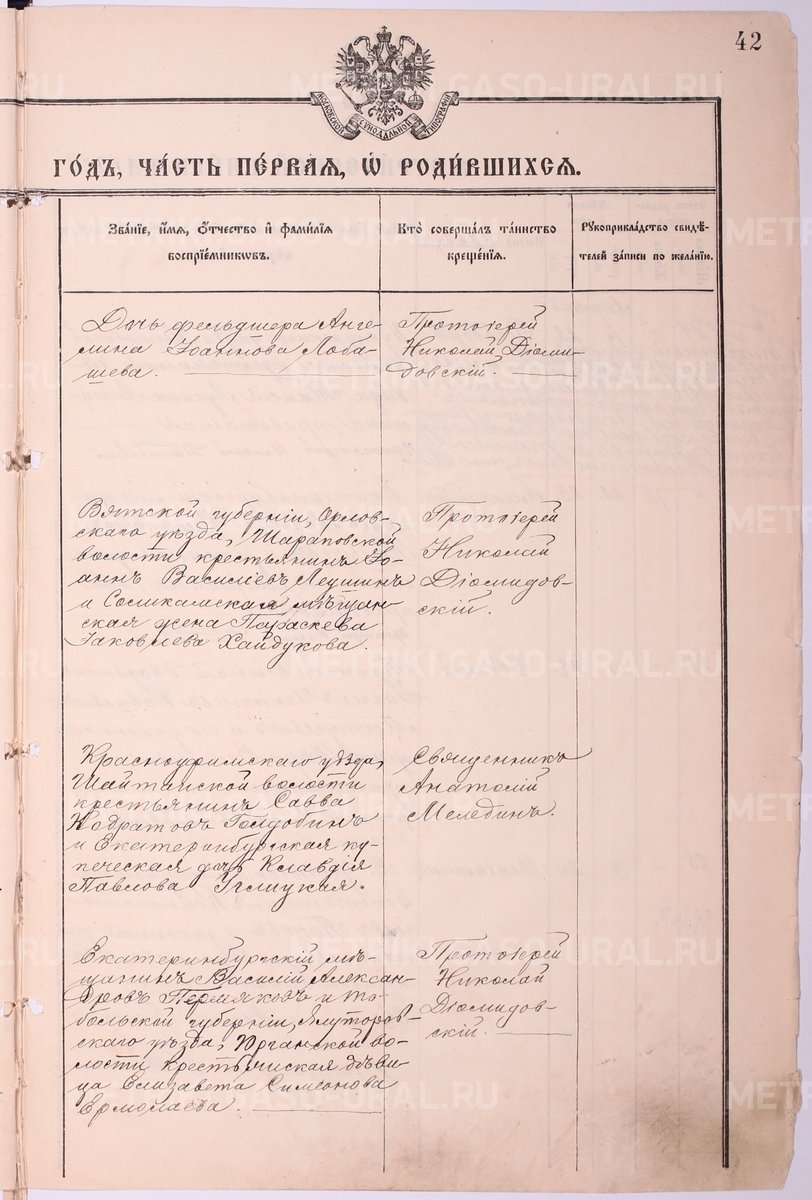 42
МОСКОВСКОЙ СѴНОДАЛЬНОЙ ТИПОГРАФІИ
ГО́ДЪ, ЧА́СТЬ ПЕ́РВАѦ, Ѡ҆ РОДИ́ВШИХСѦ.
Зва́нїе, и҆́мѧ, ѻ҆́тчество и҆ фами́лїѧ
воспрїе́мникѡвъ.
Кто̀ соверша́лъ та́инство
креще́нїѧ.
Рꙋкоприкла́дство свидѣ́-
телей за́писи по жела́нїю.
Дочь фельдшера Анге-
лина Іоаннова Лоба-
шева.
Протоіерей
Николай Діоми-
довскій.
Вятской губерніи, Орлов-
скаго уѣзда, Шараповской
волости крестьянинъ Іо-
аннъ Василіевъ Леушинъ
и Соликамская мѣщан-
ская жена Параскева
Іаковлева Хайдукова.
Протоіерей
Николай
Діомидов-
скій.
Красноуфимскаго уѣзда,
Шайтанской волости
крестьянинъ Савва
Кодратовъ Голдобинъ
и Екатеринбургская ку-
печеская дочь Клавдія
Павлова Углицкая.
Священникъ
Анатолій
Мелединъ.
Екатеринбургскій мѣ-
щанинъ Василій Алексан-
дровъ Пермяковъ и То-
больской губерніи, Ялуторов-
скаго уѣзда, Ирганской во-
лости крестьянская дѣви-
ца Елизавета Симеонова
Ермолаева.
Протоіерей
Николай
Діомидов-
скій.
METRIKI.GASO-URAL.RU